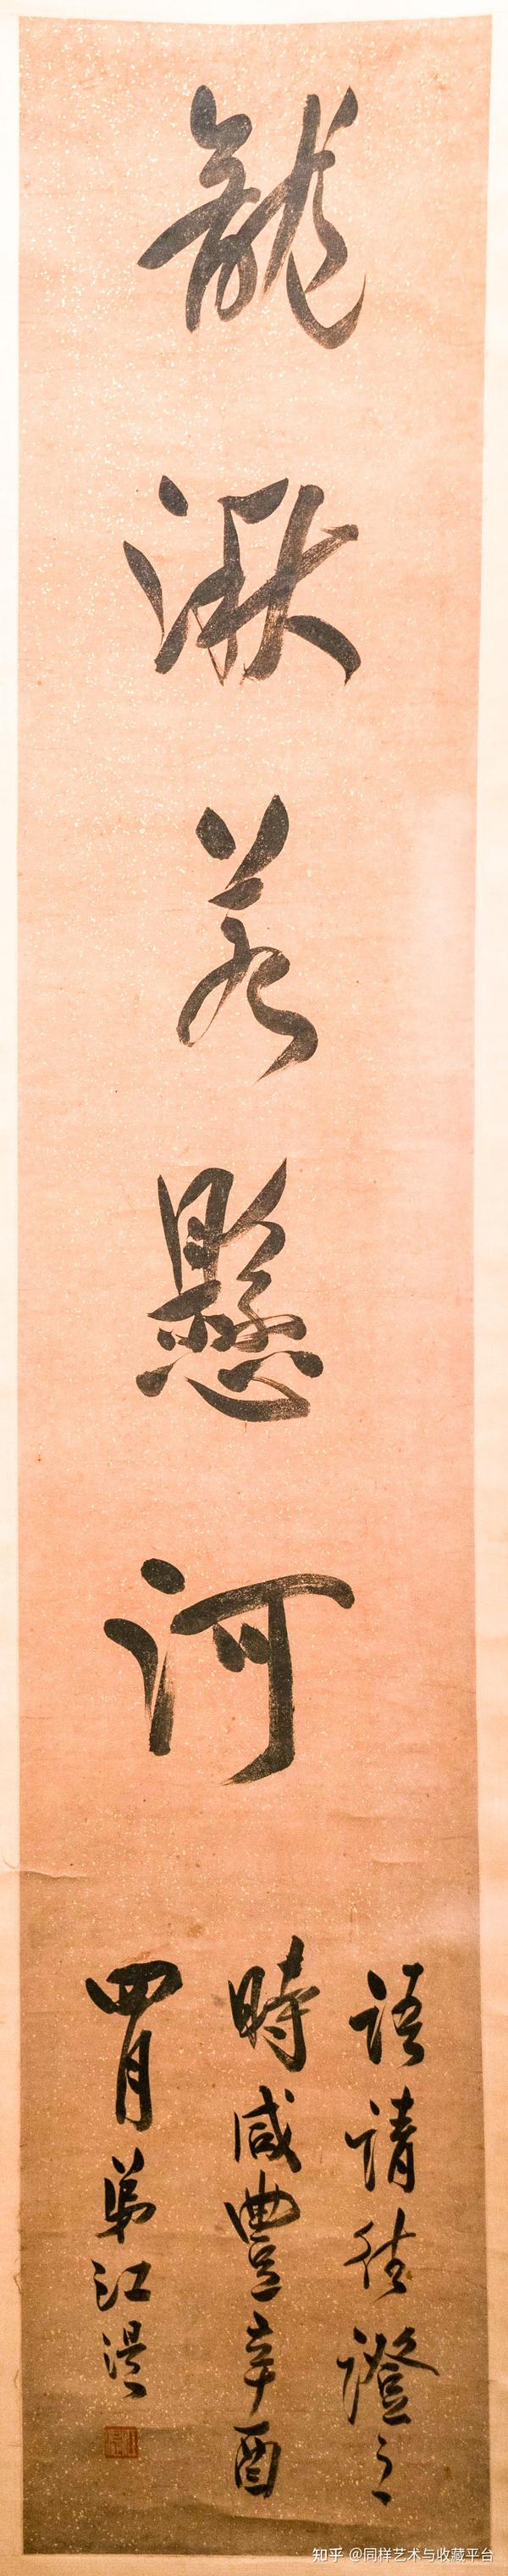 龍湫若懸河
語請往證之
時咸豐辛酉
四月弟江湜
知乎 @同样艺术与收藏平台